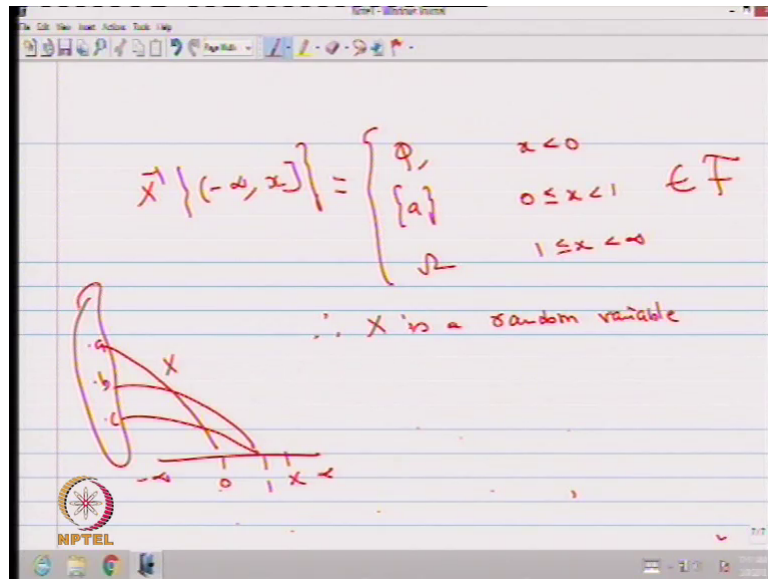 Note1 - Windows Journal
File Edit View Insert Actions Tools Help
Page Width
X⁻¹{(-∞, x]} = { Φ, x < 0
{a} 0 ≤ x < 1 ∈ F
Ω 1 ≤ x < ∞
∴ X is a random variable
a
X
b
c
-∞ 0 1 x ∞
NPTEL
7/7